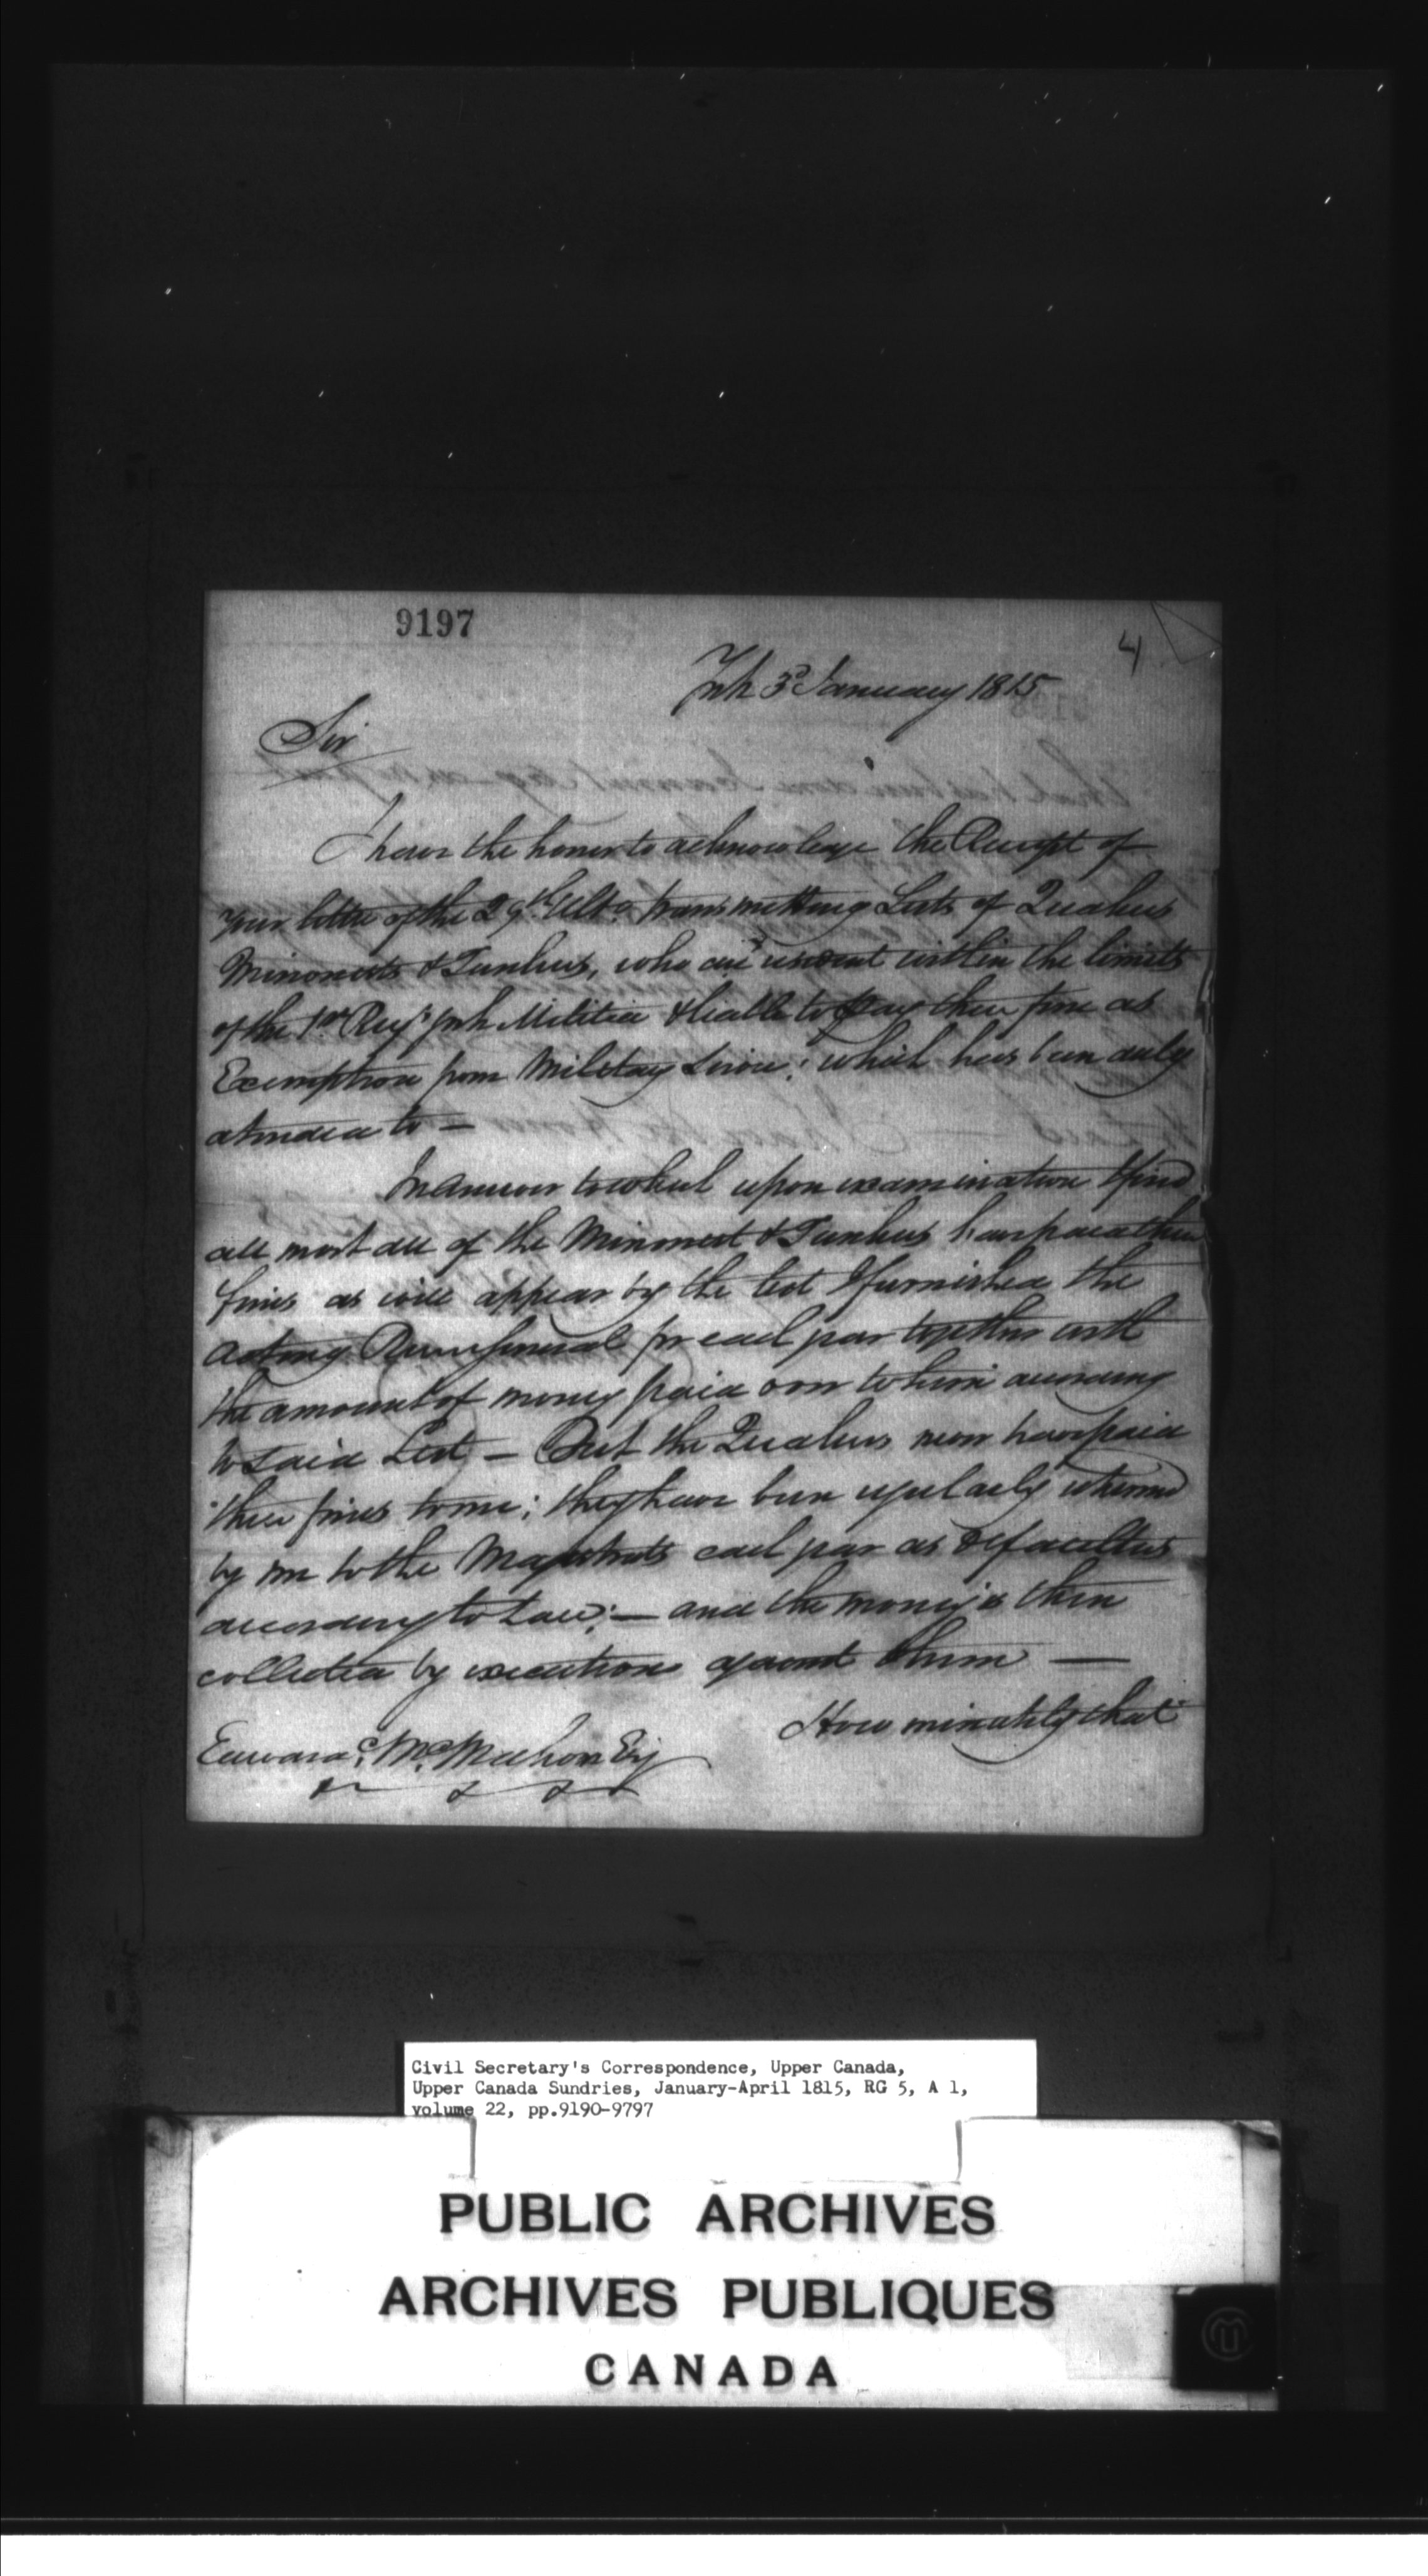 9197
4
York 3d January 1815
Sir
I have the honor to acknowlege the Receipt of
your letter of the 29th Ulto. transmitting Lists of Quakers
Minonests & Tunkers, who are resident within the limits
of the 1st Regt York Militia & liable to pay their fine as
Exemption from Military Service; which has been duly
attended to —
In answer to which upon examination I find
all most all of the Minonest & Tunkers have paid their
fines as will appear by the list I furnished the
Acting Receiver General for each year together with
the amount of money paid over to him according
to said List — But the Quakers never have paid
their fines to me; they have been regularly returned
by me to the Magistrates each year as defaulters
according to Law; — and the money is then
collected by executions against them —
How minutely that
Edward McMahon Esq
Civil Secretary's Correspondence, Upper Canada,
Upper Canada Sundries, January-April 1815, RG 5, A 1,
volume 22, pp.9190-9797
PUBLIC ARCHIVES
ARCHIVES PUBLIQUES
CANADA